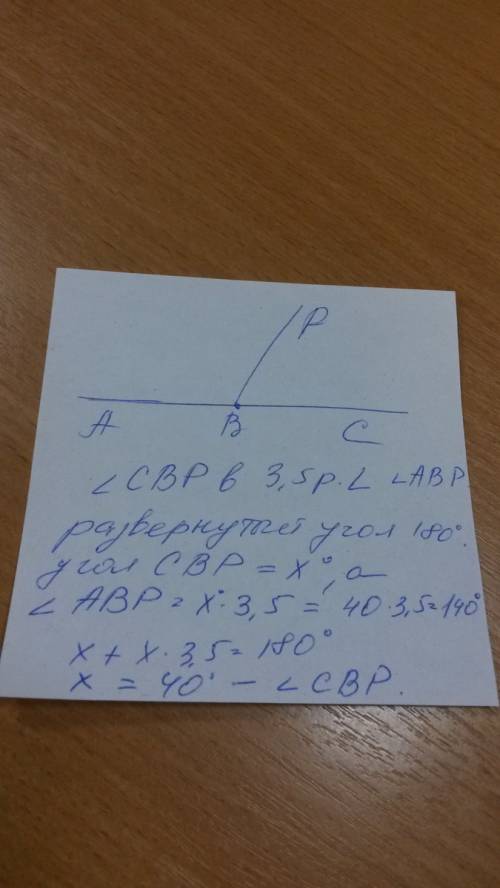 P
A B C
∠CBP в 3,5 р. < ∠ABP
развернутый угол 180°.
угол CBP = x°, а
∠ ABP = x° · 3,5 = 40 · 3,5 = 140°
x + x · 3,5 = 180°
x = 40° – ∠ CBP.